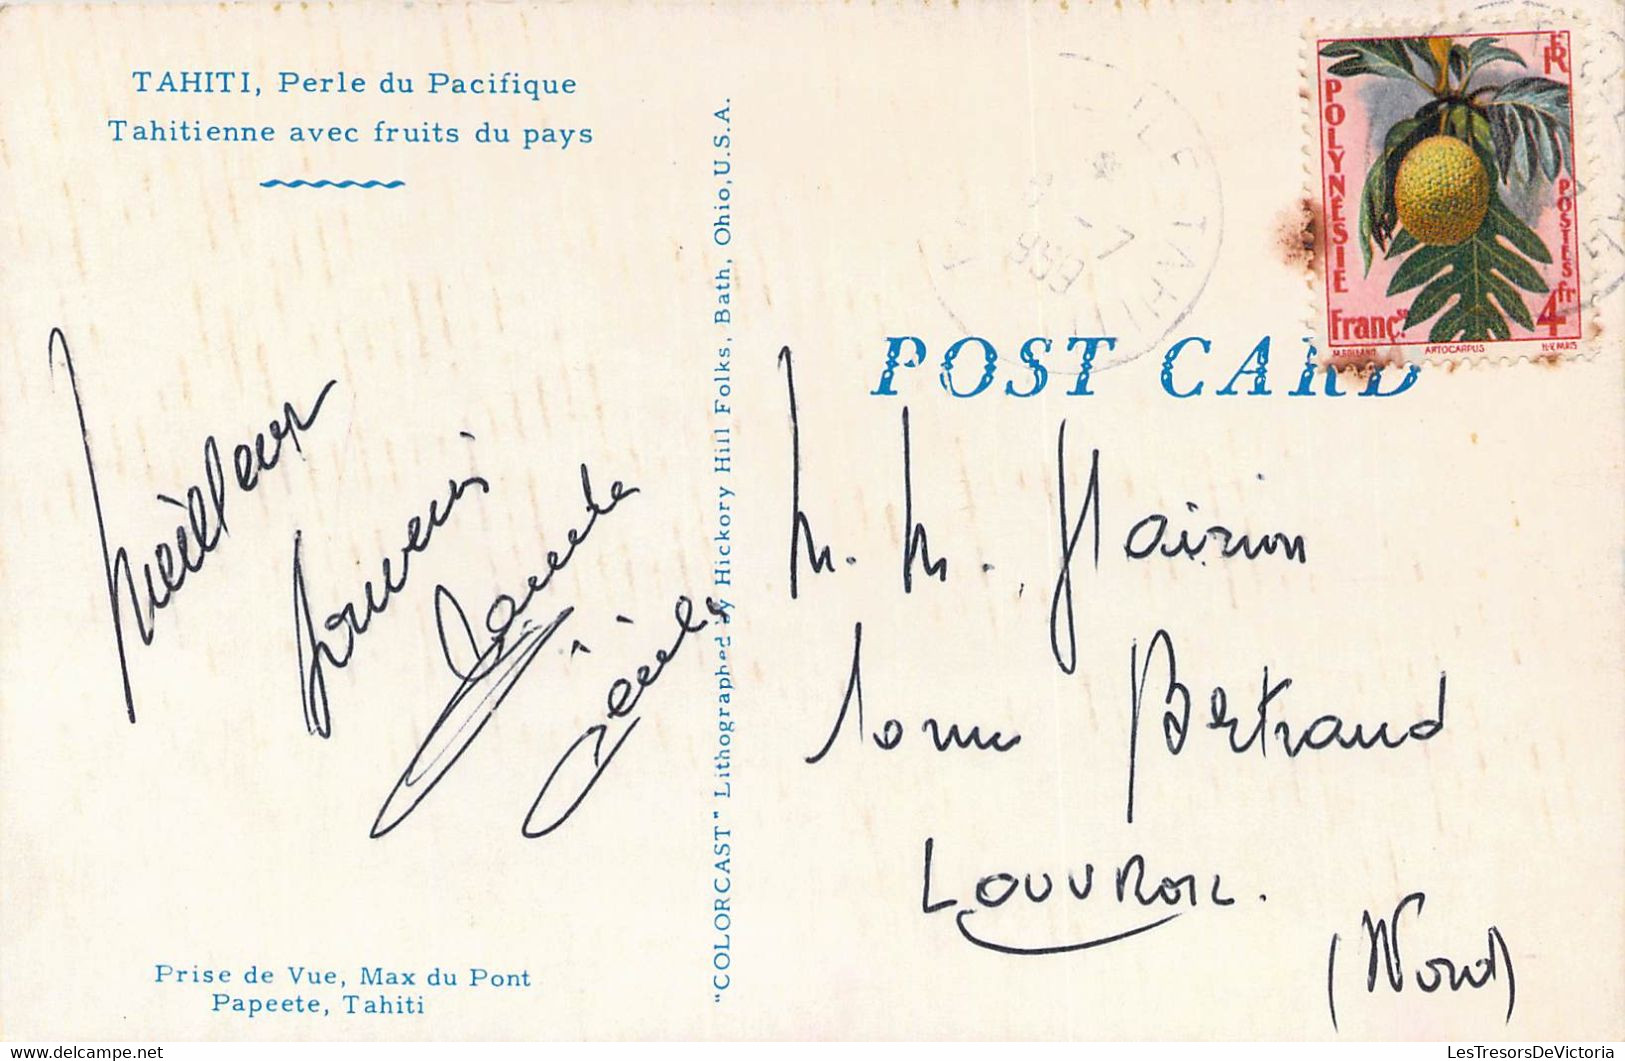 TAHITI, Perle du Pacifique
Tahitienne avec fruits du pays
"COLORCAST" Lithographed by Hickory Hill Folks, Bath, Ohio, U.S.A.
RF
POLYNÉSIE
POSTES
4fr
Franç.se
ARTOCARPUS
H-V. PARIS
TAHITI
POST CARD
Meilleurs
souvenirs
M. M. Flairion
Bertrand
LOUVROIL.
(Nord)
Prise de Vue, Max du Pont
Papeete, Tahiti
LesTresorsDeVictoria